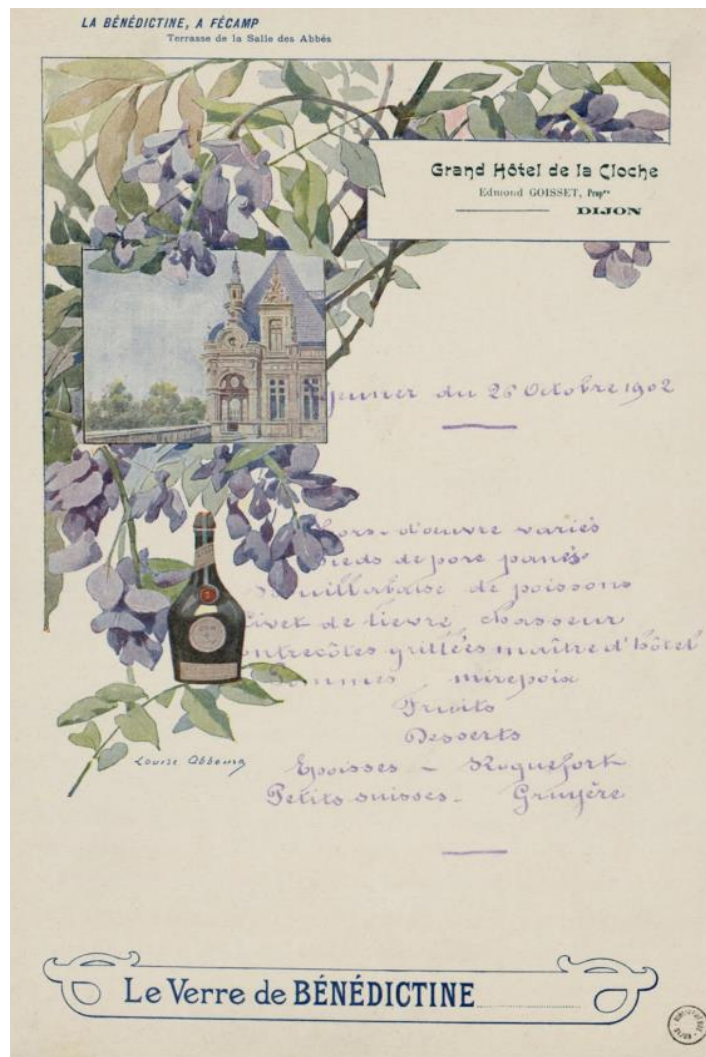 LA BÉNÉDICTINE, A FÉCAMP
Terrasse de la Salle des Abbés
Grand Hôtel de la Cloche
Edmond GOISSET, Propre
DIJON
jeuner du 26 Octobre 1902
ors-d'œuvre variés
ieds de porc panés
uillabaise de poissons
ivet de lievre chasseur
ntrecôtes grillées maître d'hôtel
ommes mirepoix
Fruits
Desserts
Epoisses - Roquefort
Petits suisses - Gruyère
Louise Abbema
Le Verre de BÉNÉDICTINE